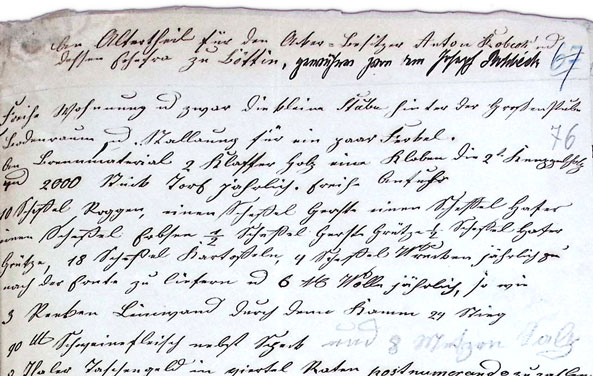 den Altertheil für den Acker=besitzer Anton Robeck und
dessen Ehefra zu Böttin, gewähren von dem Joseph Robeck
67
Freihe Wohnung ud zwar die kleine Stube hinter der Großenstube
76
Bodenraum ud Stallung für ein paar Ferkel.
An Brennmaterial 2 Klaffter Holz eine Kloben die 2t Knüppelholz
und 2000 Stück Torf jährlich. freihe Anfuhr
10 Scheffel Roggen, einen Scheffel Gerste einen Scheffel Hafer
einen Scheffel Erbsen ½ Scheffel Gerste Grütze ½ Scheffel Hafer
Grütze, 18 Scheffel Kartoffeln, 4 Scheffel Wrucken jährlich zu
nach der Ernte zu liefern ud 6 Wolle jährlich, so wie
3 Leinwand durch den Kamm 24 Stieg
90 Schweinefleisch nebst Speck und 8 Metzen Salz
Thaler Taschengeld in viertel Raten postnumerando zu zahlen